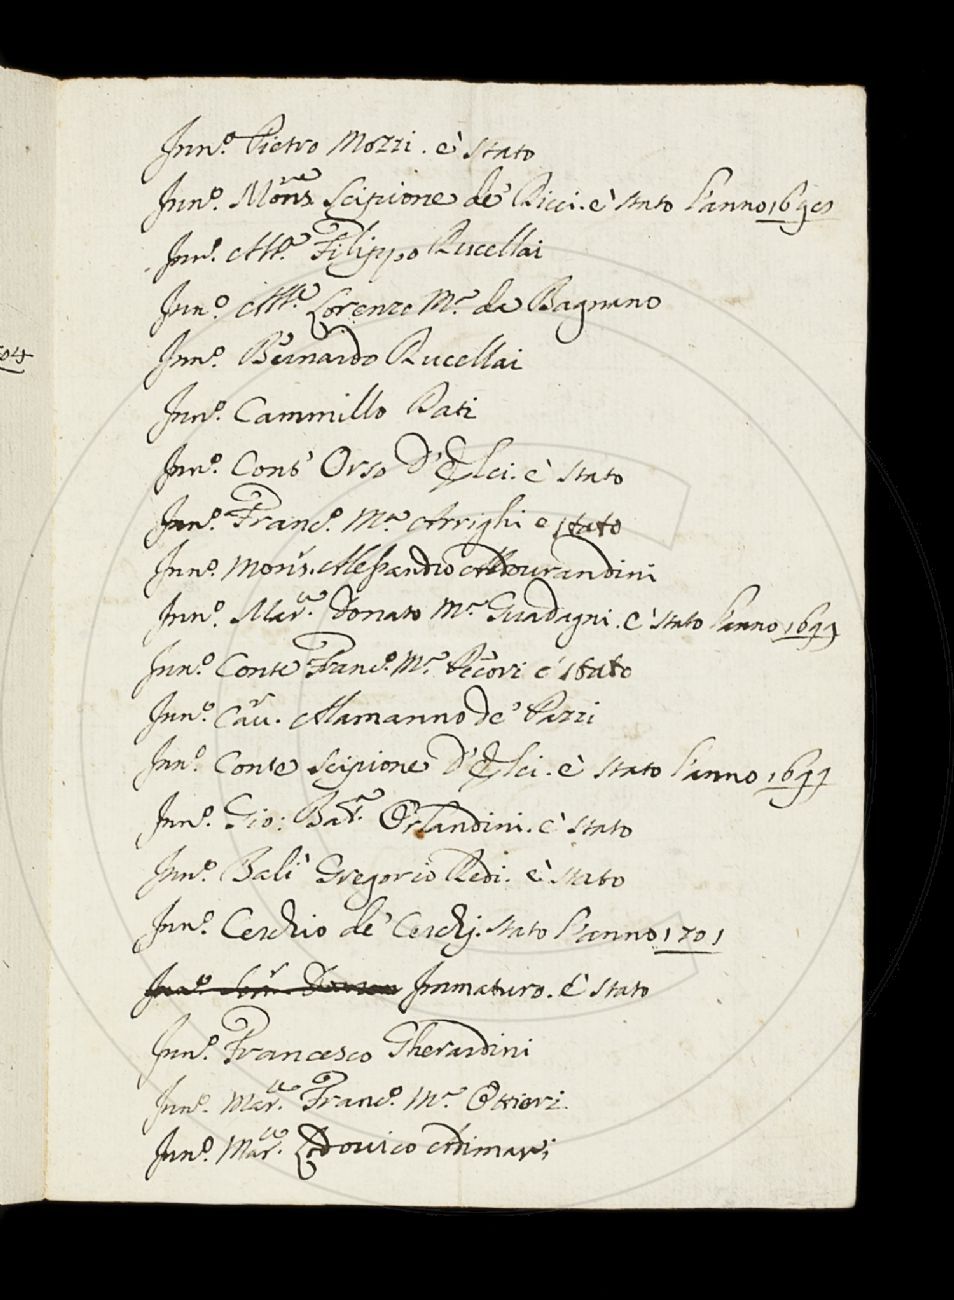 Inn.o Pietro Mozzi. è stato
Inn.o Mons.re Scipione de' Ricci. è stato l'anno 1690
Inn.o Ab.e Filippo Rucellai
Inn.o Ab.e Lorenzo M.a da Bagnano
Inn.o Bernardo Rucellai
Inn.o Cammillo Pati
Inn.o Conte Orso D'Elci. è stato
Inn.o Franc.o M.a Arrighi e stato
Inn.o Mons.r Alessandro Aldourandini
Inn.o Mar.se Donato M.a Guadagni. è stato l'anno 1699
Inn.o Conte Franc.o M.a Pecori è stato
Inn.o Cav.r Alamanno de' Pazzi
Inn.o Conte Scipione D'Elci. è stato l'anno 1697
Inn.o Gio: Bat.a Orlandini. è stato
Inn.o Bali Gregorio Redi. è stato
Inn.o Cerchio de' Cerchj. stato l'anno 1701
Immaturo. è stato
Inn.o Francesco Gherardini
Inn.o Mar.se Franc.o M.a Ottieri
Inn.o Mar.se Lodouico Adimari